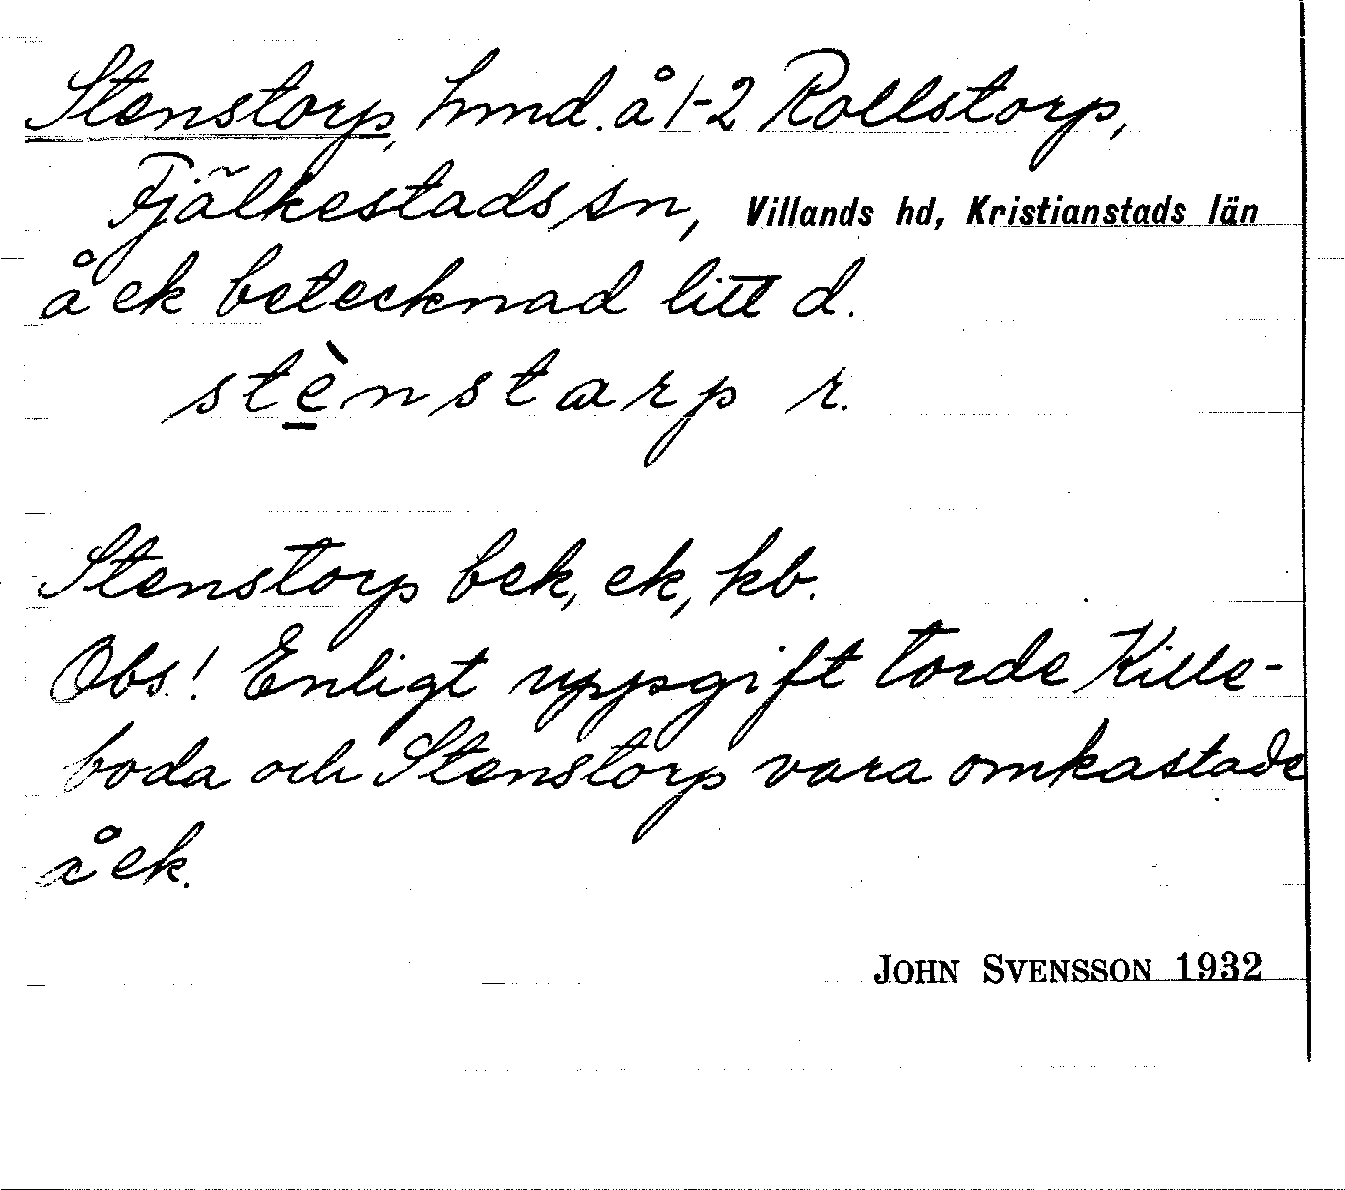 Stenstorp, hmd. å 1-2 Rollstorp,
Fjälkestads sn, Villands hd, Kristianstads län
å ek betecknad litt d.
stè̲nstarp r.
Stenstorp bek, ek, kb.
Obs! Enligt uppgift torde Kille-
boda och Stenstorp vara omkastade
å ek.
JOHN SVENSSON 1932